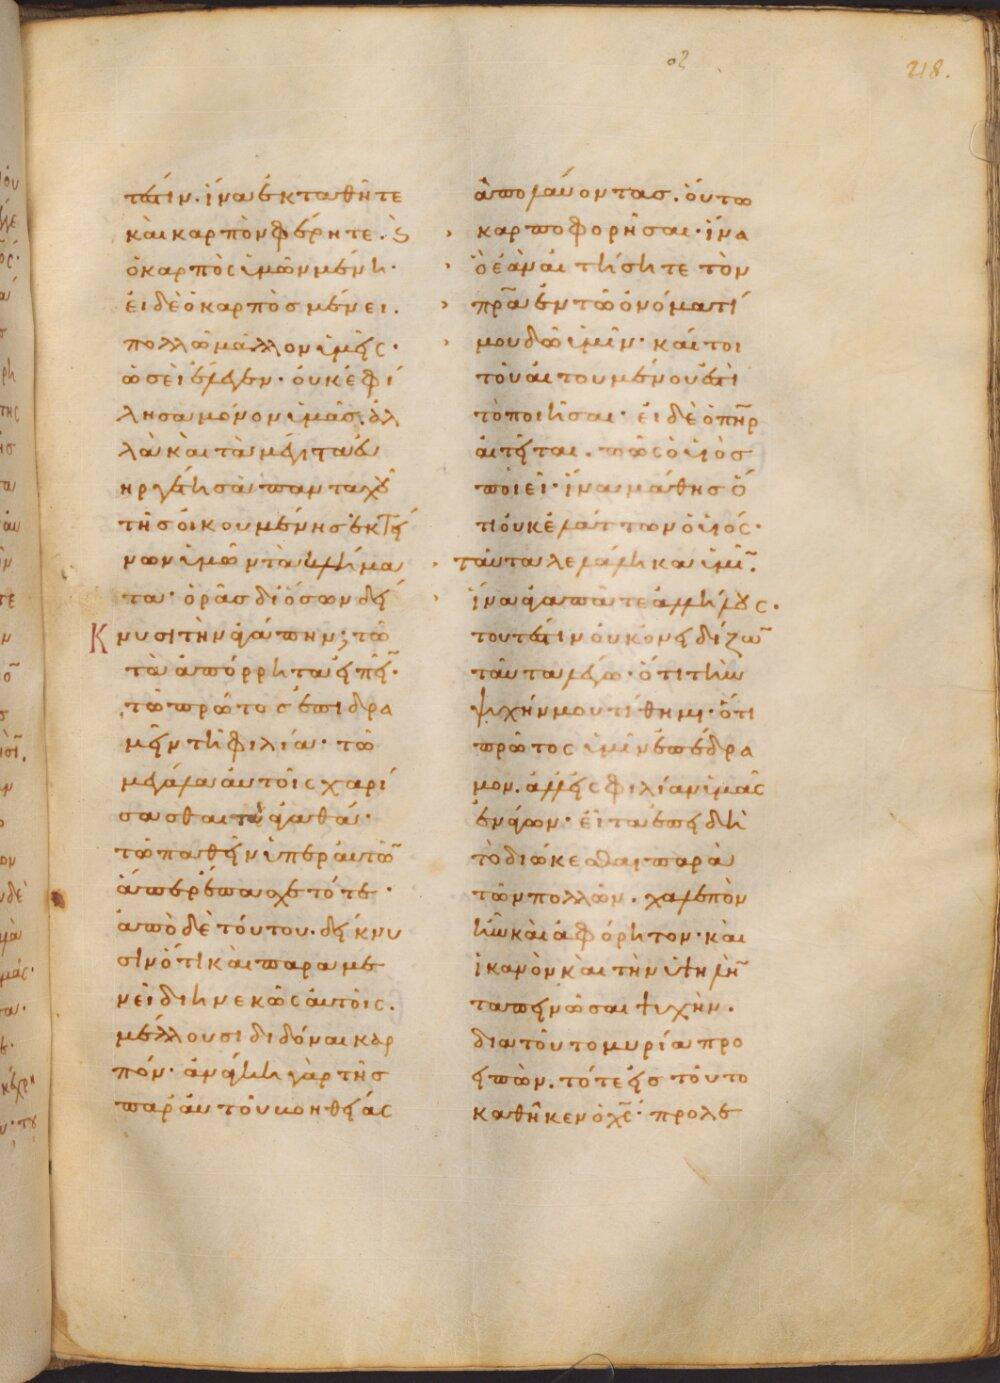 οζ
218.
τέστιν· ἵνα ἐκταθῆτε
καὶ καρπὸν φέρητε. ὁ
ὁ καρπὸς ὑμῶν μένη·
εἰ δὲ ὁ καρπὸς μένει.
πολλῶ μᾶλλον ὑμεῖς·
ὡσεὶ ἔλεγεν· οὐκ ἐφί
λησα μόνον ὑμᾶς· ἀλ
λὰ καὶ τὰ μέγιστα εὐ
ηργέτησα πανταχοῦ
τῆς οἰκουμένης ἐκτεί
νων ὑμῶν τὰ κλήμα
τα· ὁρᾶς δι ὅσων δεί
κνυσι τὴν ἀγάπην; τῶ
τὰ ἀπόρρητα εἰπεῖν·
τῶ πρῶτος ἐπιδρα
μεῖν τῆ φιλία· τῶ
μεγάλα αὐτοῖς χαρί
σασθαι τὰ ἀγαθά·
τῶ παθεῖν ὑπὲρ αὐτῶν
ἅπερ ἔπασχε τότε·
ἀπὸ δὲ τούτου· δείκνυ
σιν ὅτι καὶ παραμέ
νει διηνεκῶς αὐτοῖς.
μέλλουσι διδόναι καρ
πόν· ἀνάγκη γὰρ τῆς
παρ αὐτοῦ βοηθείας
ἀπολαύοντας· οὕτω
καρποφορῆσαι· ἵνα
ὃ ἐὰν αἰτήσητε τὸν
πρᾶ ἐν τῶ ὀνόματί
μου δῶ ὑμῖν· καίτοι
τοῦ αἰτουμένου ἐστὶ
τὸ ποιῆσαι· εἰ δὲ ὁ πῆρ
αἰτεῖται. πῶς ὁ υἱὸς
ποιεῖ· ἵνα μάθης ὅ
τι οὐκ ἐλάττων ὁ υἱός·
ταῦτα λελάληκα ὑμῖν·
ἵνα ἀγαπᾶτε ἀλλήλους.
τουτέστιν οὐκ ὀνειδίζων
ταῦτα λέγω· ὅτι τὴν
ψυχήν μου τίθημι· ὅτι
πρῶτος ὑμῖν ἐπέδρα
μον. ἀλλ εἰς φιλίαν ὑμᾶς
ἐνάγων· εἶτα ἐπειδὴ
τὸ διώκεσθαι παρὰ
τῶν πολλῶν. χαλεπὸν
ἦν καὶ ἀφόρητον· καὶ
ἱκανὸν καὶ τὴν ὑψηλὴν
ταπεινῶσαι ψυχήν.
διὰ τοῦτο μυρία προ
ειπὼν. τότε εἰς τοῦτο
καθῆκεν ὁ χς· προλε